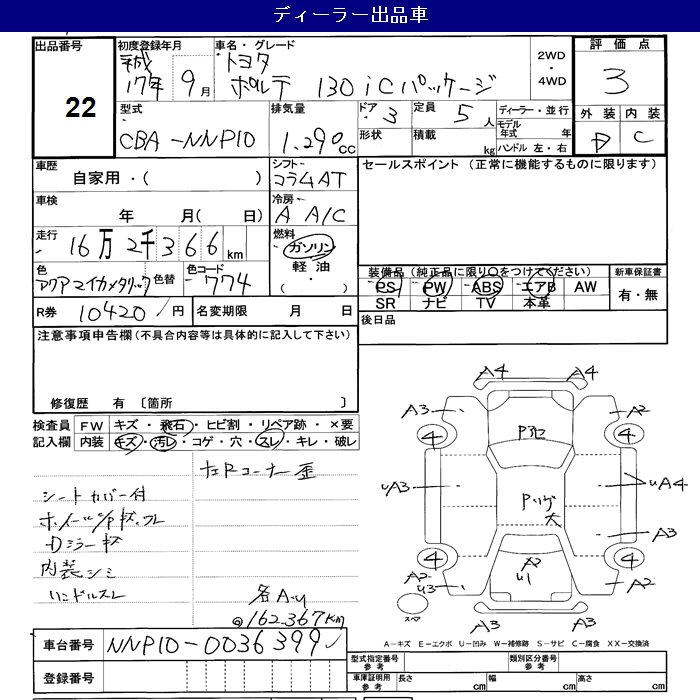 ディーラー出品車
出品番号 22
初度登録年月 平成 17年 9月
車名・グレード トヨタ ポルテ 130iCパッケージ
2WD・4WD
評価点 3
外装 内装
D C
型式 CBA-NNP10
排気量 1.290cc
ドア 3 形状
定員 5人 積載 kg
ディーラー・並行
モデル年式 年
ハンドル 左・右
車歴 自家用・( )
シフト コラムAT
セールスポイント (正常に機能するものに限ります)
車検 年 月( 日)
冷房 A A/C
走行 16万2千366km
燃料 ガソリン 軽油 ( ・ )
色 アクアマイカメタリック 色替
色コード 774
装備品 (純正品に限り○をつけてください)
PS PW ABS エアB AW
SR ナビ TV 本革
新車保証書 有・無
R券 10420円 名変期限 月 日
後日品
注意事項申告欄(不具合内容等は具体的に記入して下さい)
修復歴 有 〔箇所
検査員記入欄
FW キズ・飛石・ヒビ割・リペア跡・×要
内装 キズ・汚レ・コゲ・穴・スレ・キレ・破レ
左Rコーナー歪
シートカバー付
ホイールC/Pキズ、フレ
Dミラーキズ
内装シミ
ハンドルスレ
各A・u
@162.367km
A4 A4
A3 A2
4 4
Pガセ
uA3 uA4
Pリゲ大
A3
4 4
A2 u1
A2 u3 A2
スペア
A3 A3
A-キズ E-エクボ U-凹み W-補修跡 S-サビ C-腐食 XX-交換済
車台番号 NNP10-0036399
登録番号
型式指定番号 参考
類別区分番号 参考
車庫証明用 参考 長さ cm 幅 cm 高さ cm